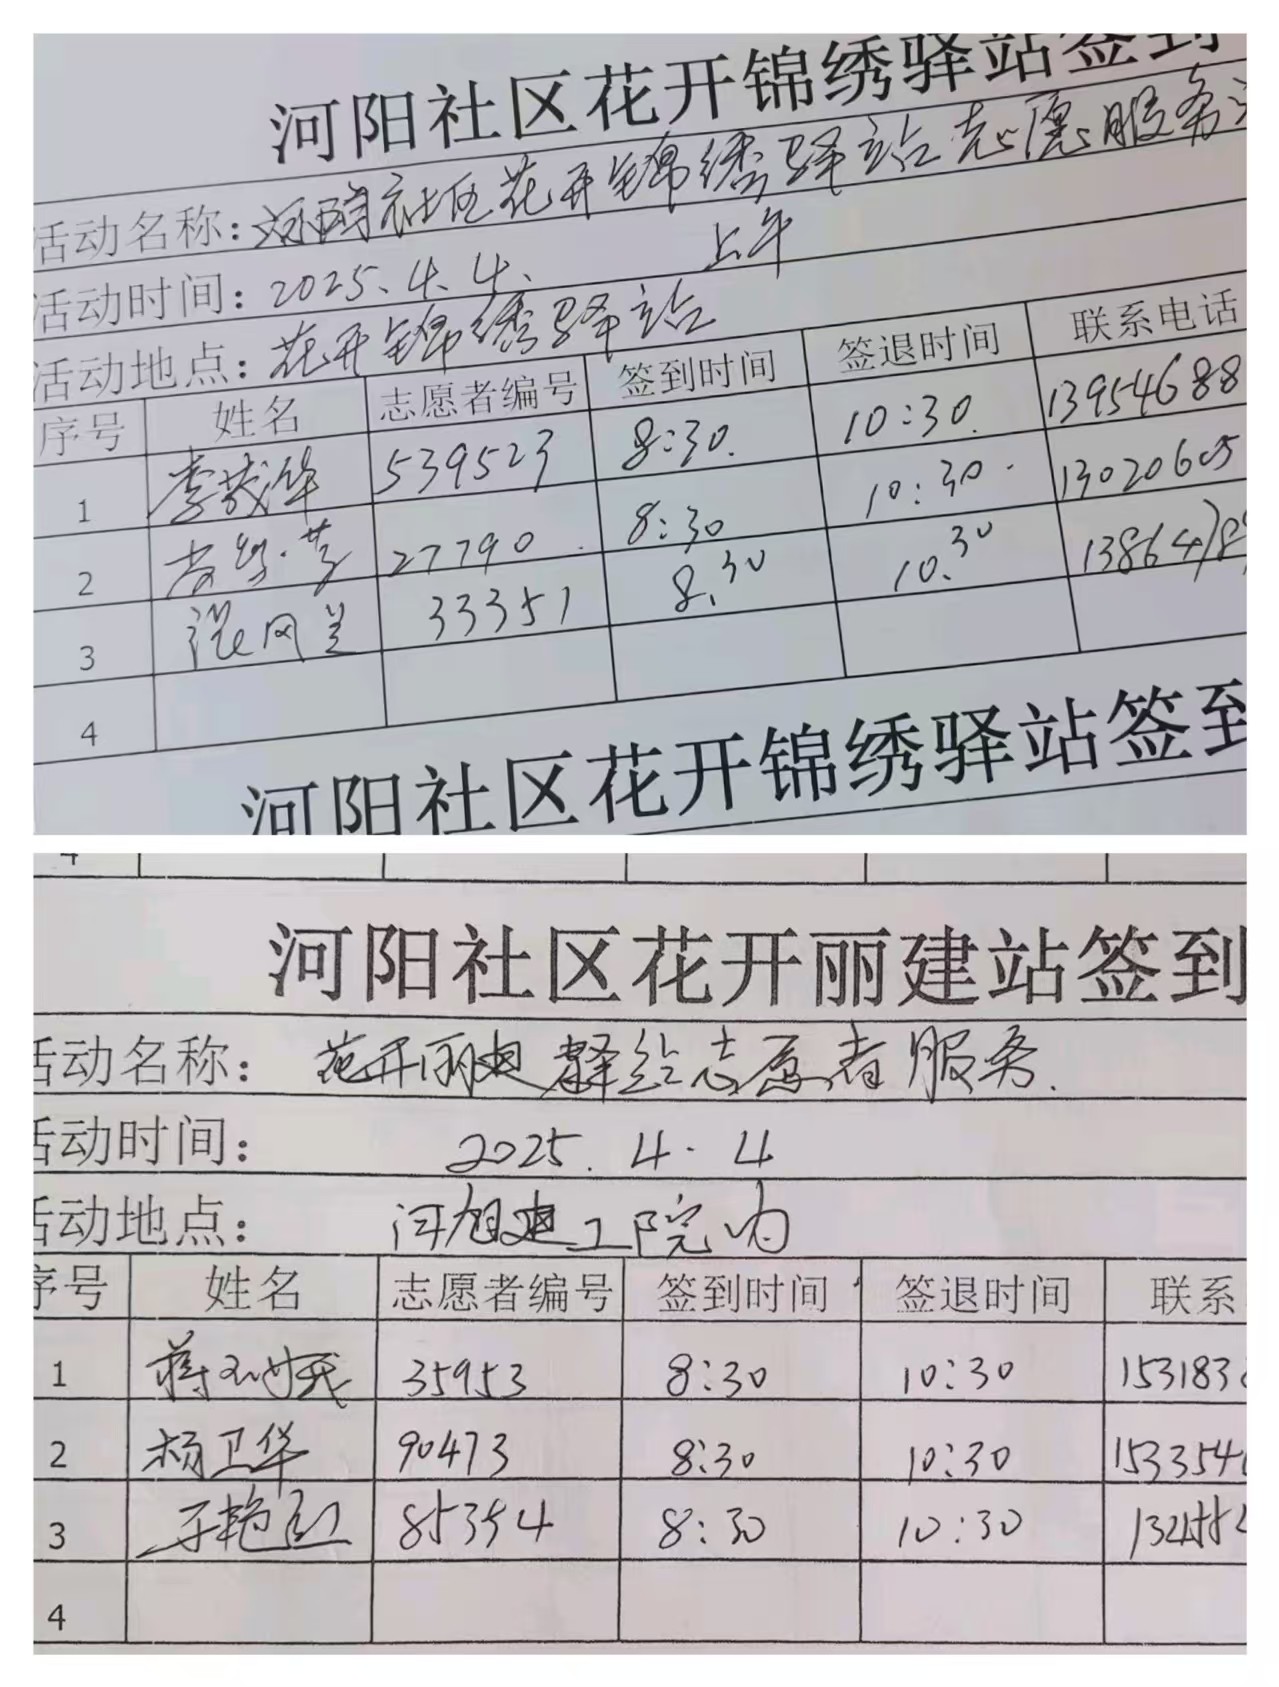 河阳社区花开锦绣驿站签到
活动名称:河阳社区花开锦绣驿站志愿服务
活动时间:2025.4.4. 上午
活动地点:花开锦绣驿站
序号 姓名 志愿者编号 签到时间 签退时间 联系电话
1 李茂华 539523 8:30. 10:30. 13954688
2 27790 8:30 10:30. 13020605
3 张风兰 33351 8.30 10.30 138647
4
河阳社区花开锦绣驿站签到
4
河阳社区花开丽建站签到
活动名称: 花开丽建驿站志愿者服务.
活动时间: 2025.4.4
活动地点: 建工院内
序号 姓名 志愿者编号 签到时间 签退时间 联系
1 35953 8:30 10:30 153183
2 杨卫华 90473 8:30 10:30 153354
3 于艳红 85394 8:30 10:30
4